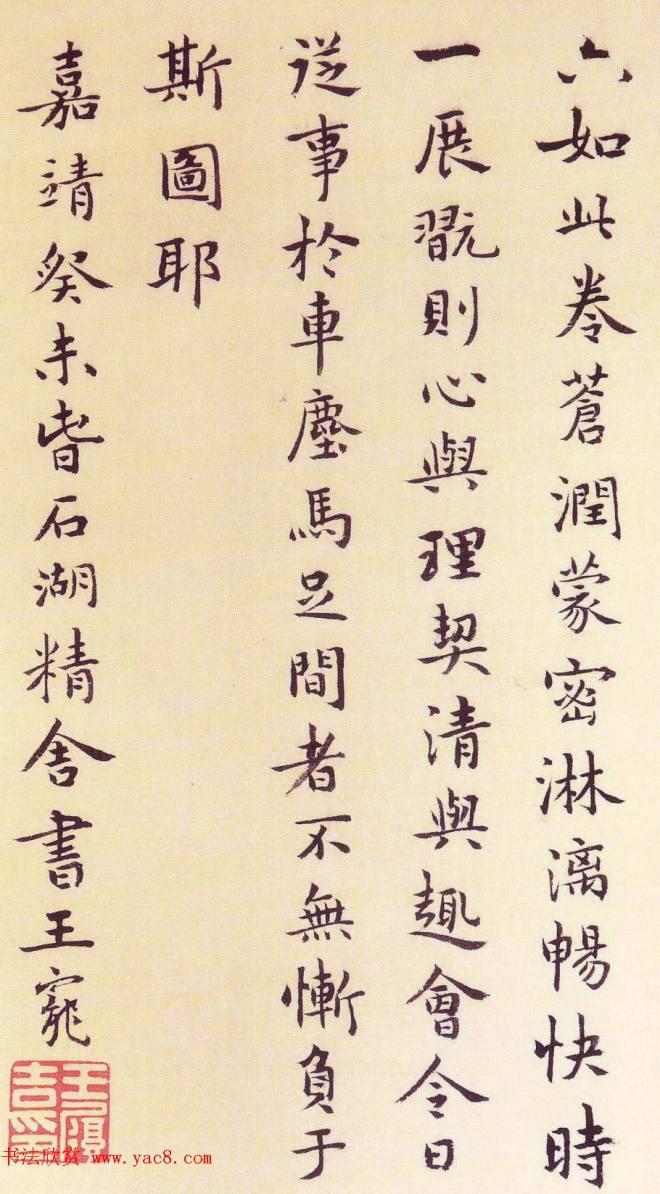 六如此卷蒼潤蒙密淋漓暢快時
一展翫則心與理契清與趣會今日
從事於車塵馬足間者不無慚負于
斯圖耶
嘉靖癸未石湖精舍書王寵
王履吉印
书法欣赏 www.yac8.com